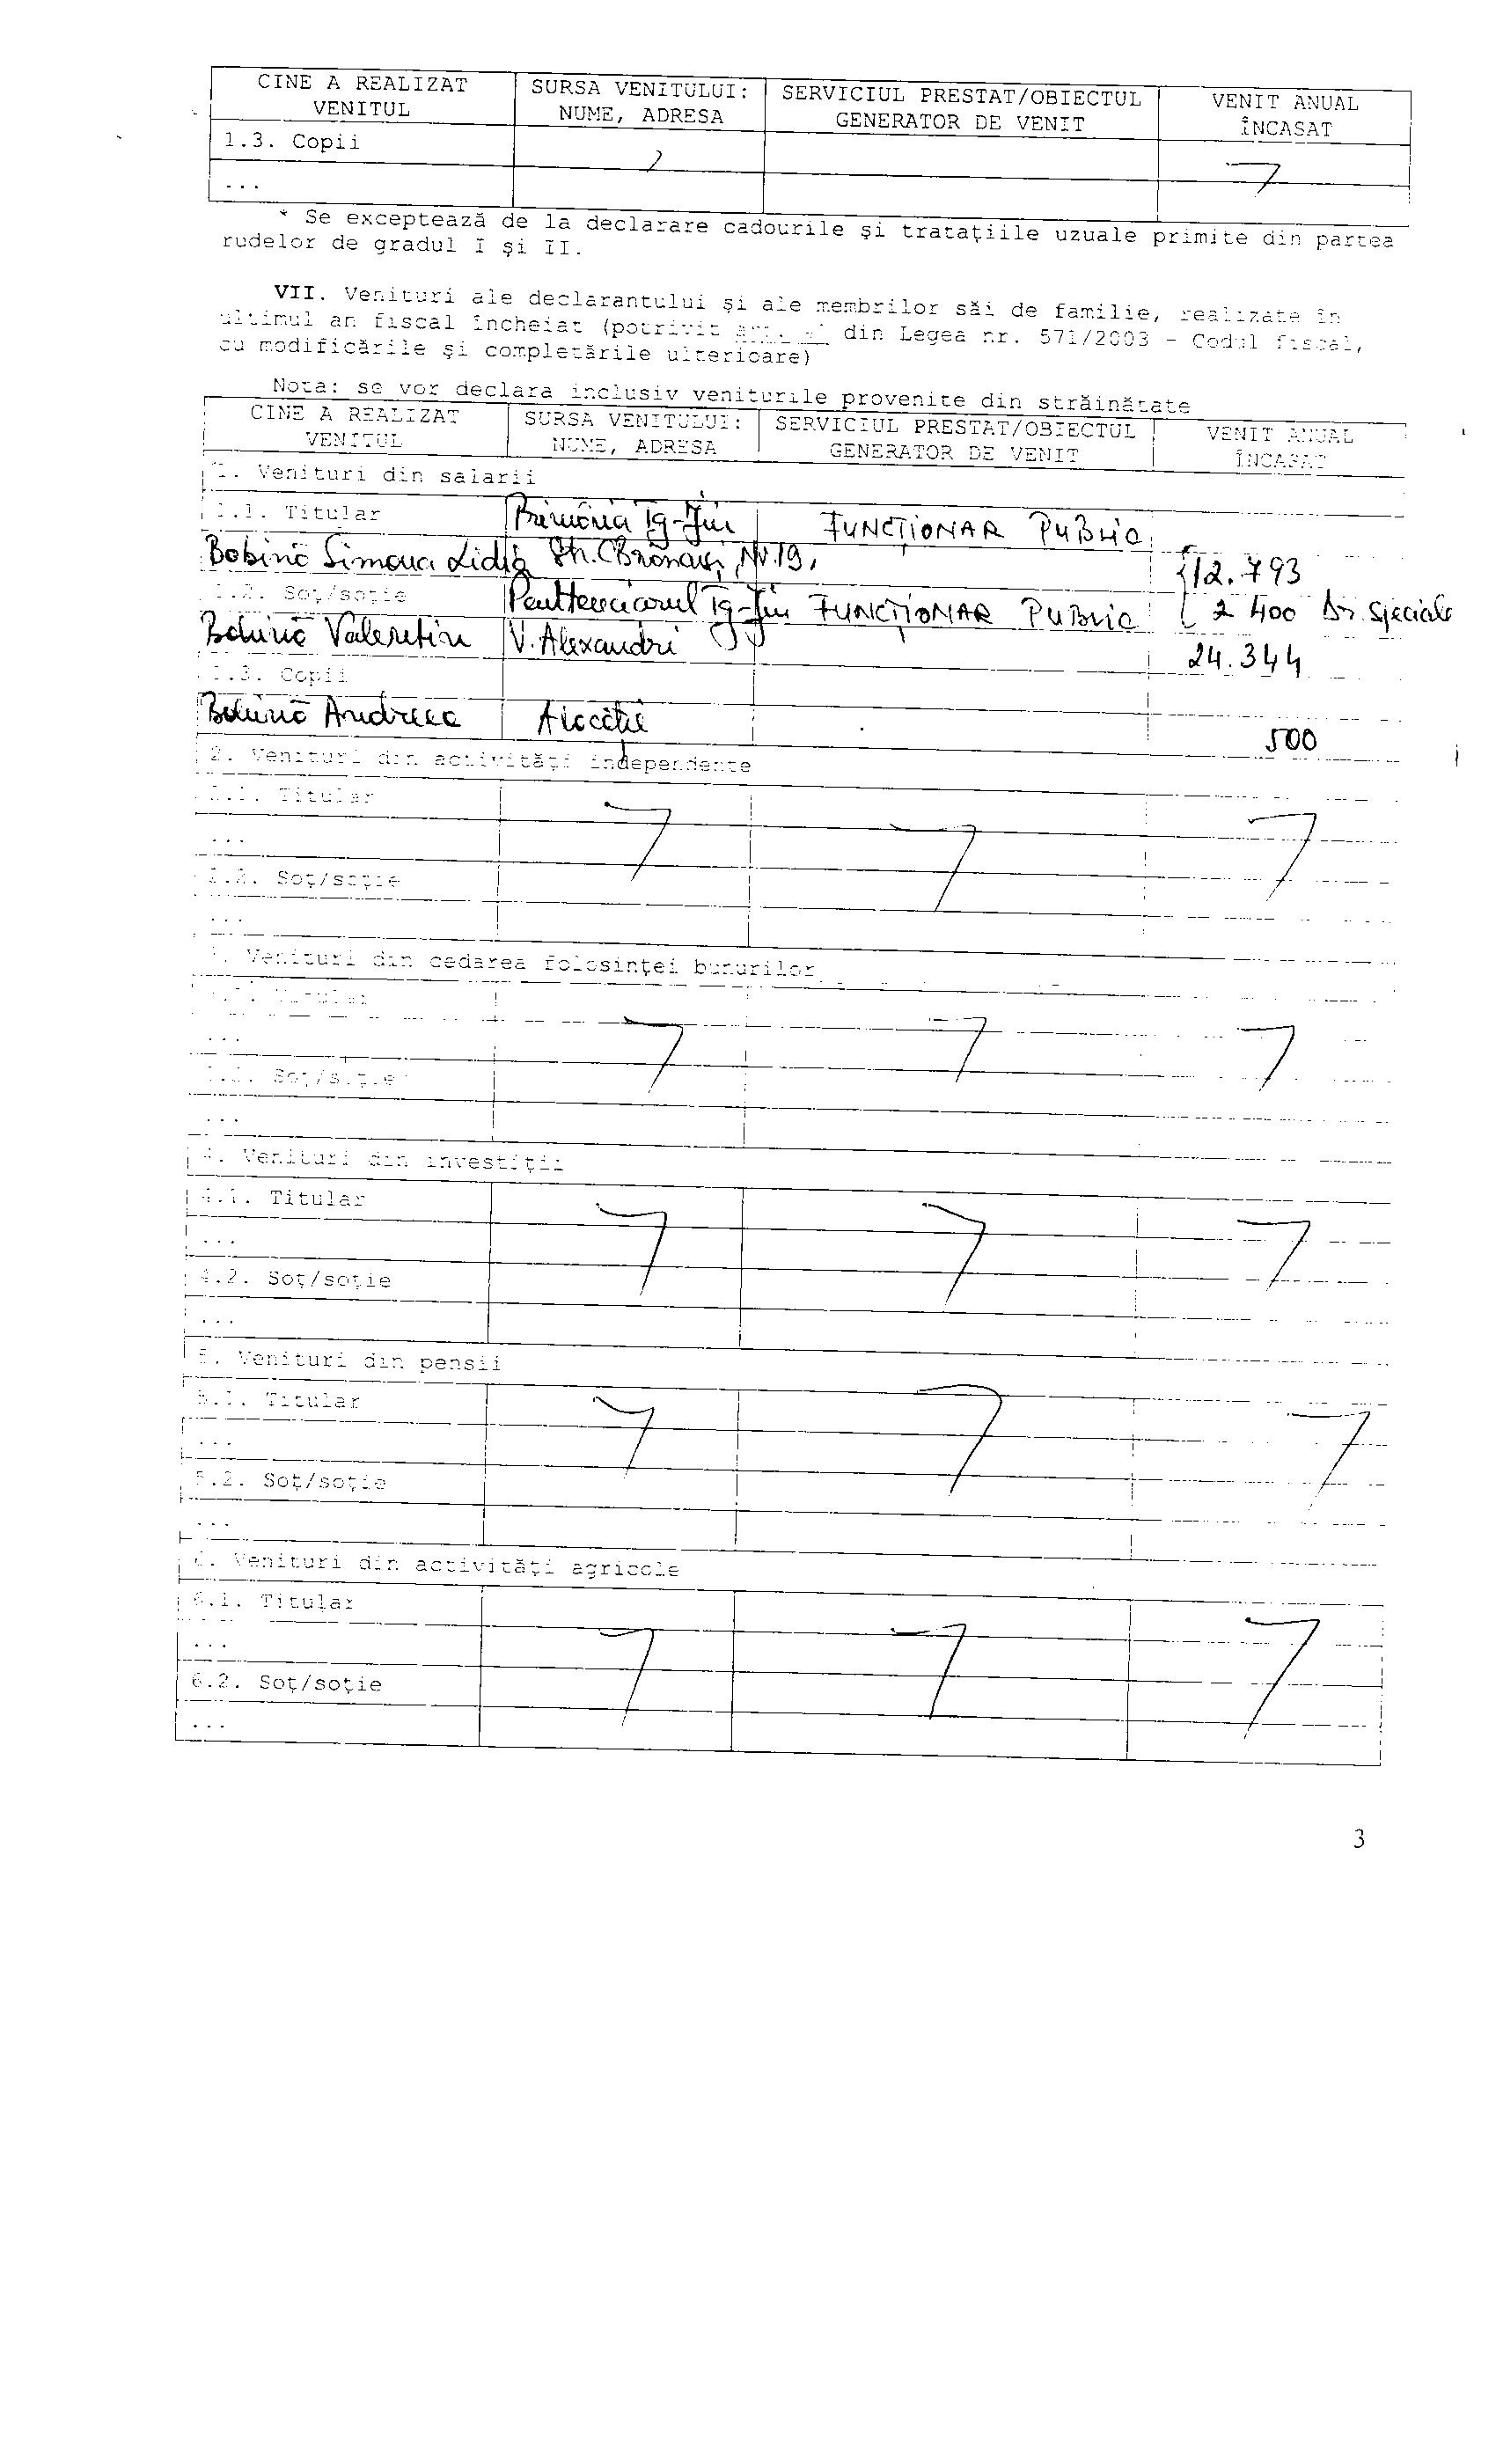 CINE A REALIZAT VENITUL | SURSA VENITULUI: NUME, ADRESA | SERVICIUL PRESTAT/OBIECTUL GENERATOR DE VENIT | VENIT ANUAL ÎNCASAT
1.3. Copii
...
* Se exceptează de la declarare cadourile şi trataţiile uzuale primite din partea
rudelor de gradul I şi II.
VII. Venituri ale declarantului şi ale membrilor săi de familie, realizate în
ultimul an fiscal încheiat (potrivit art. 41 din Legea nr. 571/2003 - Codul fiscal,
cu modificările şi completările ulterioare)
Nota: se vor declara inclusiv veniturile provenite din străinătate
CINE A REALIZAT VENITUL | SURSA VENITULUI: NUME, ADRESA | SERVICIUL PRESTAT/OBIECTUL GENERATOR DE VENIT | VENIT ANUAL ÎNCASAT
1. Venituri din salarii
1.1. Titular | Primăria Tg-Jiu | FUNCȚIONAR PUBLIC
Simona Lidia Str. Nr. 19, 12.793
1.2. Soţ/soţie | Penitenciarul Tg-Jiu | FUNCȚIONAR PUBLIC | 2 400 Dr. speciale
Valentin | V. Alexandri | 24.344
1.3. Copii
Andreea | Alocație | 500
2. Venituri din activităţi independente
2.1. Titular
...
2.2. Soţ/soţie
...
3. Venituri din cedarea folosinţei bunurilor
3.1. Titular
...
3.2. Soţ/soţie
...
4. Venituri din investiţii
4.1. Titular
...
4.2. Soţ/soţie
...
5. Venituri din pensii
5.1. Titular
...
5.2. Soţ/soţie
...
6. Venituri din activităţi agricole
6.1. Titular
...
6.2. Soţ/soţie
...
3